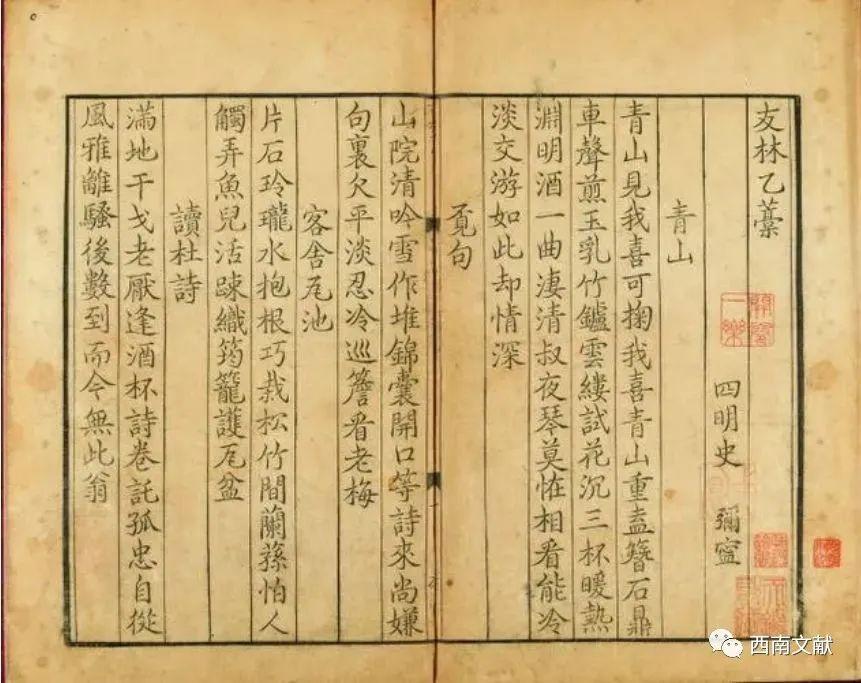 友林乙藁
四明史　彌寧
青山
青山見我喜可掬我喜青山重盍簪石鼎
車聲煎玉乳竹鑪雲縷試花沉三杯暖熱
淵明酒一曲淒清叔夜琴莫恠相看能冷
淡交游如此却情深
覔句
山院清吟雪作堆錦囊開口等詩來尚嫌
句裏欠平淡忍冷巡簷看老梅
客舍瓦池
片石玲瓏水抱根巧栽松竹間蘭蓀怕人
觸弄魚兒活踈織筠籠護瓦盆
讀杜詩
滿地干戈老厭逢酒杯詩卷託孤忠自從
風雅離騷後數到而今無此翁
西南文献